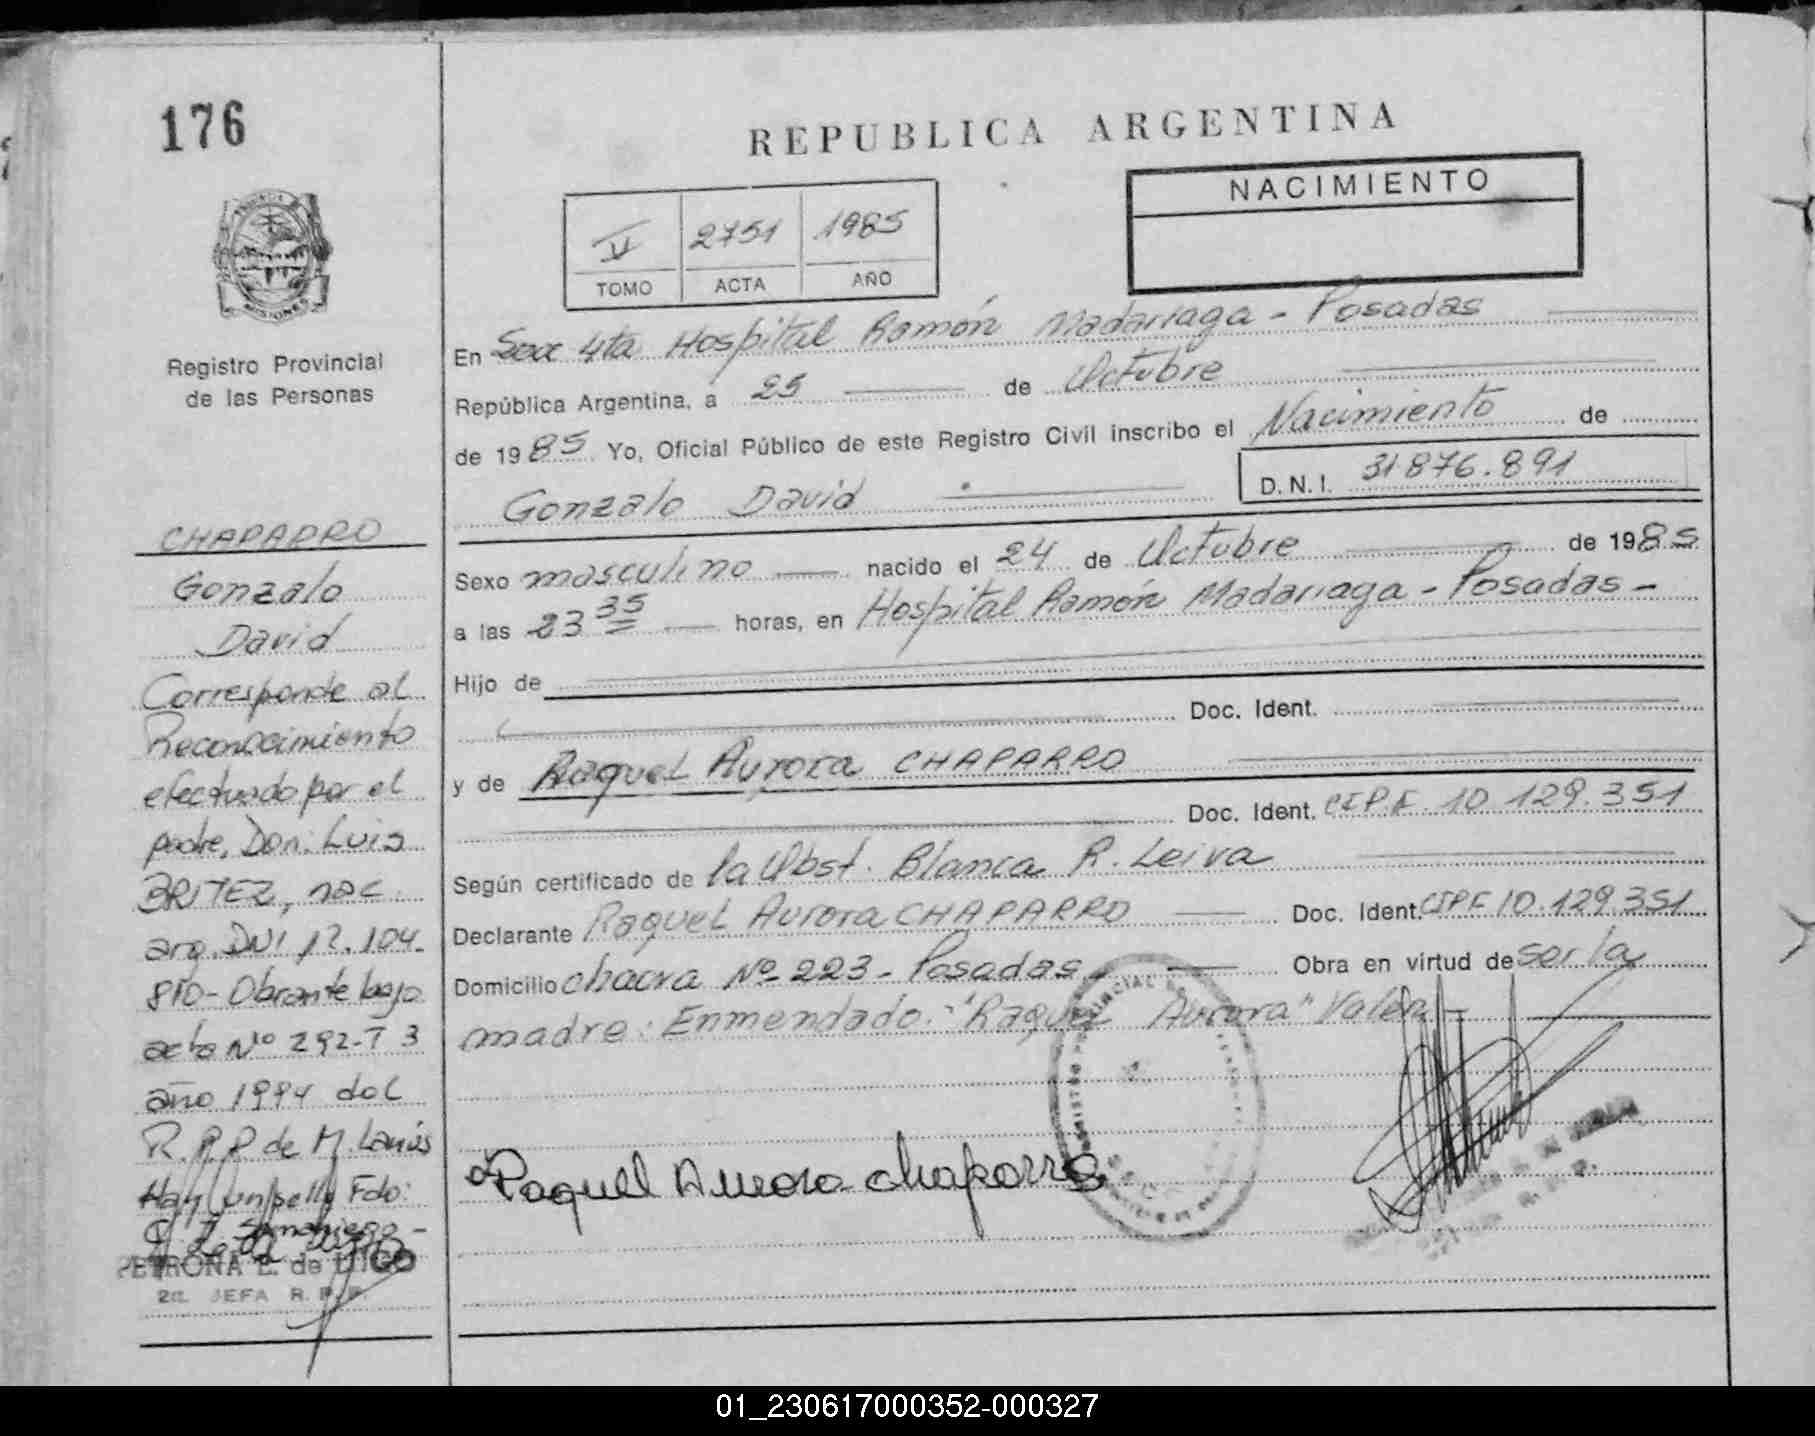 176
REPUBLICA ARGENTINA
NACIMIENTO
V 2751 1985
TOMO ACTA AÑO
Registro Provincial
de las Personas
En Secc 4ta Hospital Ramón Madariaga - Posadas
República Argentina, a 25 de Octubre
de 1985 Yo, Oficial Público de este Registro Civil inscribo el Nacimiento de
Gonzalo David D.N.I. 31.876.891
Sexo masculino nacido el 24 de Octubre de 1985
a las 23 35 horas, en Hospital Ramón Madariaga - Posadas -
Hijo de
Doc. Ident.
y de Raquel Aurora CHAPARRO
Doc. Ident. CIPF 10.129.351
Según certificado de la Obst. Blanca R. Leiva
Declarante Raquel Aurora CHAPARRO Doc. Ident. CIPF 10.129.351
Domicilio chacra Nº 223 - Posadas Obra en virtud de ser la
madre. Enmendado: "Raquel Aurora" Valen
Raquel Aurora chaparro
CHAPARRO
Gonzalo
David
Corresponde al
Reconocimiento
efectuado por el
padre, Don: Luis
BRITEZ, nac.
arg. DNI 17.104.
810 - Obrante bajo
acta Nº 292-T 3
año 1994 del
R.P.P de M. Lanús
Hay un sello Fdo:
PETRONA E. de
2a. JEFA R.P.P.
01_230617000352-000327